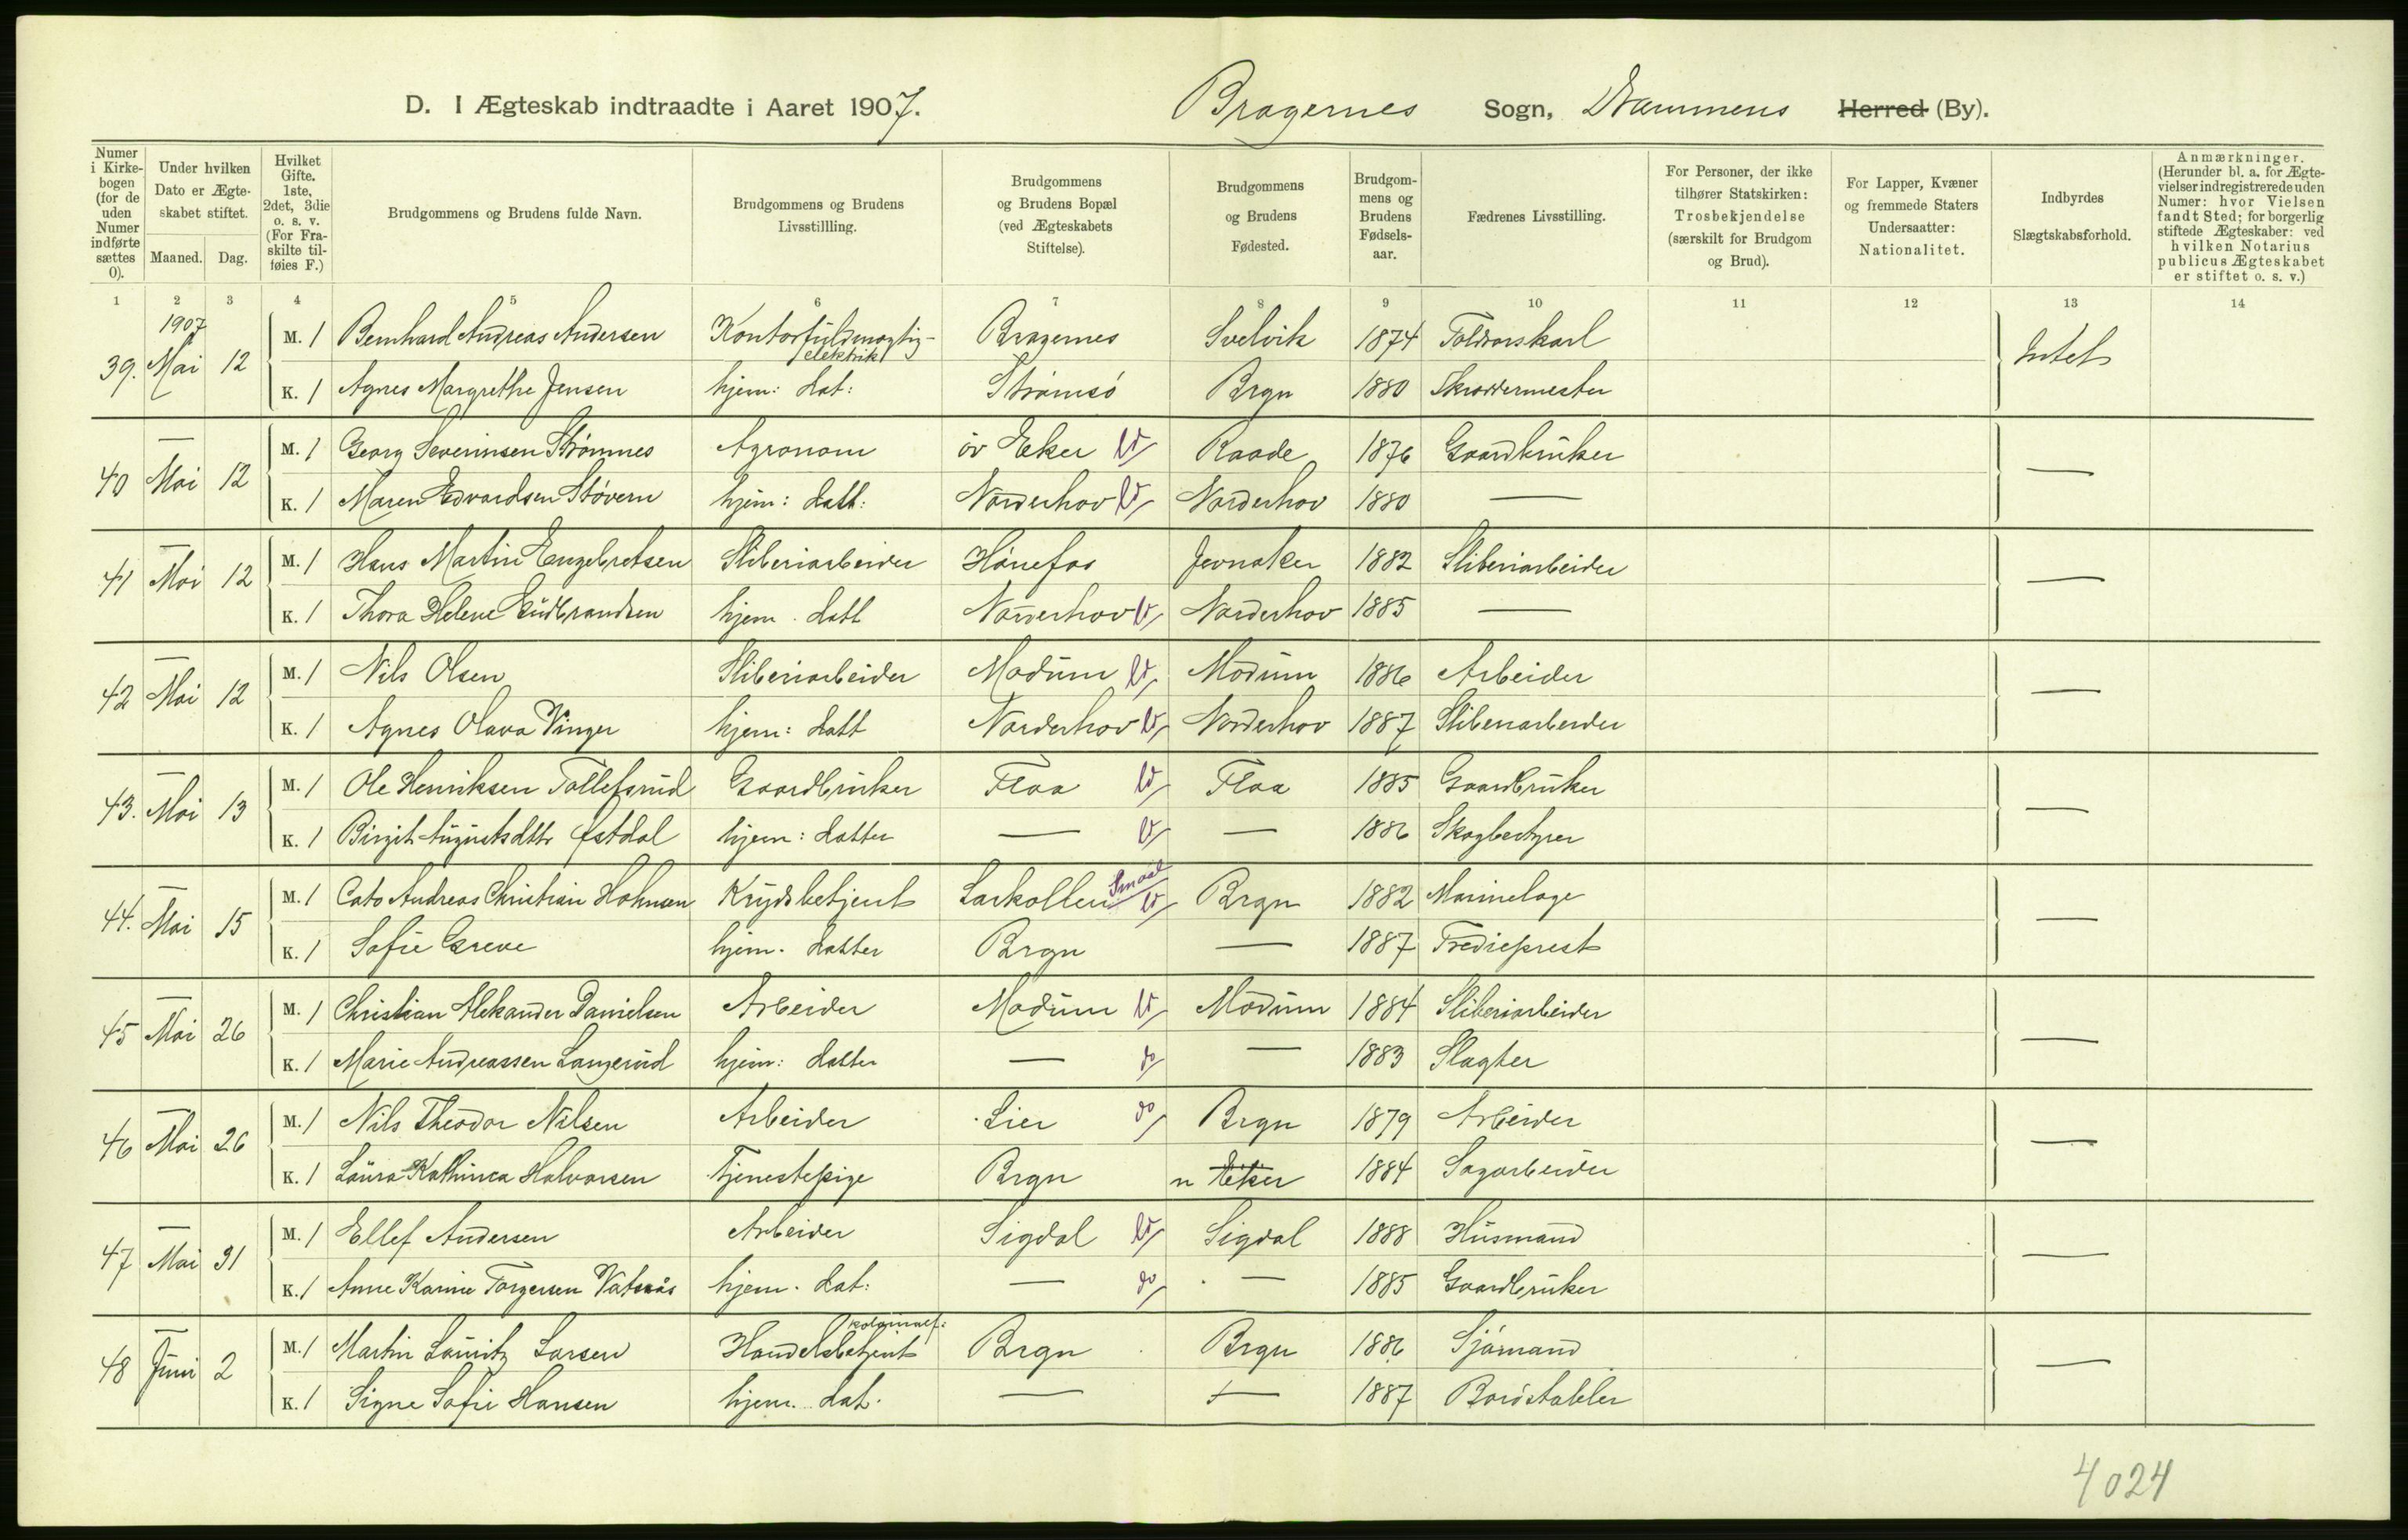 D. I Ægteskab indtraadte i Aaret 1907. Bragernes Sogn, Drammens Herred (By).
Numer i Kirkebogen (for de uden Numer indførte sættes 0). Under hvilken Dato er Ægteskabet stiftet. Maaned. Dag. Hvilket Gifte. 1ste, 2det, 3die o. s. v. (For Fraskilte tilføies F.) Brudgommens og Brudens fulde Navn. Brudgommens og Brudens Livsstillling. Brudgommens og Brudens Bopæl (ved Ægteskabets Stiftelse). Brudgommens og Brudens Fødested. Brudgommens og Brudens Fødselsaar. Fædrenes Livsstilling. For Personer, der ikke tilhører Statskirken: Trosbekjendelse (særskilt for Brudgom og Brud). For Lapper, Kvæner og fremmede Staters Undersaatter: Nationalitet. Indbyrdes Slægtskabsforhold. Anmærkninger. (Herunder bl. a. for Ægtevielser indregistrerede uden Numer: hvor Vielsen fandt Sted; for borgerlig stiftede Ægteskaber: ved hvilken Notarius publicus Ægteskabet er stiftet o. s. v.)
1 2 3 4 5 6 7 8 9 10 11 12 13 14
1907
39. Mai 12 M. 1 Bernhard Andreas Andersen Kontorfuldmægtig elektrik Bragernes Svelvik 1874 Toldvorskarl Intet
K. 1 Agnes Margrethe Jensen hjem: dat: Strømsø Brgn 1880 Skræddermester
40 — Mai 12 M. 1 Georg Severinsen Strømnes Agronom öv Eker Raade 1876 Gaardbruker —
K. 1 Maren Edvardsen Støvern hjem: datt: Norderhov Norderhov 1880 —
41 — Mai 12 M. 1 Hans Martin Engebretsen Sliberiarbeider Hönefos Jevnaker 1882 Sliberiarbeider —
K. 1 Thora Helene Gudbrandsen hjem. datt Norderhov Norderhov 1885 —
42 — Mai 12 M. 1 Nils Olsen Sliberiarbeider Modum Modum 1886 Arbeider —
K. 1 Agnes Olava Vinger hjem: datt Norderhov Norderhov 1887 Sliberiarbeider
43. — Mai 13 M. 1 Ole Henriksen Tollefsrud Gaardbruker Flaa Flaa 1885 Gaardbruker —
K. 1 Birgit Augustsdttr Østdal hjem: datter — — 1886 Skogbestyrer
44. — Mai 15 M. 1 Cato Andreas Christian Hohnsen Krydsbetjent Larkollen Smaal Brgn 1882 Marinelæge —
K. 1 Sofie Greve hjem. datter Brgn — 1887 Tredieprest
45 — Mai 26 M. 1 Christian Aleksander Danielsen Arbeider Modum Modum 1884 Sliberiarbeider —
K. 1 Marie Andreassen Langerud hjem: datter — do — 1883 Slagter
46 — Mai 26 M. 1 Nils Theodor Nilsen Arbeider Lier do Brgn 1879 Arbeider —
K. 1 Laura Kathinca Halvorsen Tjenestepige Brgn n Eker 1884 Sagarbeider
47 — Mai 31 M. 1 Ellef Andersen Arbeider Sigdal Sigdal 1888 Husmand —
K. 1 Anne Karine Torgersen Vatnås hjem. dat: — do — 1885 Gaardbruker
48 — Juni 2 M. 1 Martin Lauritz Larsen Handelsbetjent kolonialf: Brgn Brgn 1886 Sjömand —
K. 1 Signe Sofie Hansen hjem. dat. — — 1887 Bordstabler
4024